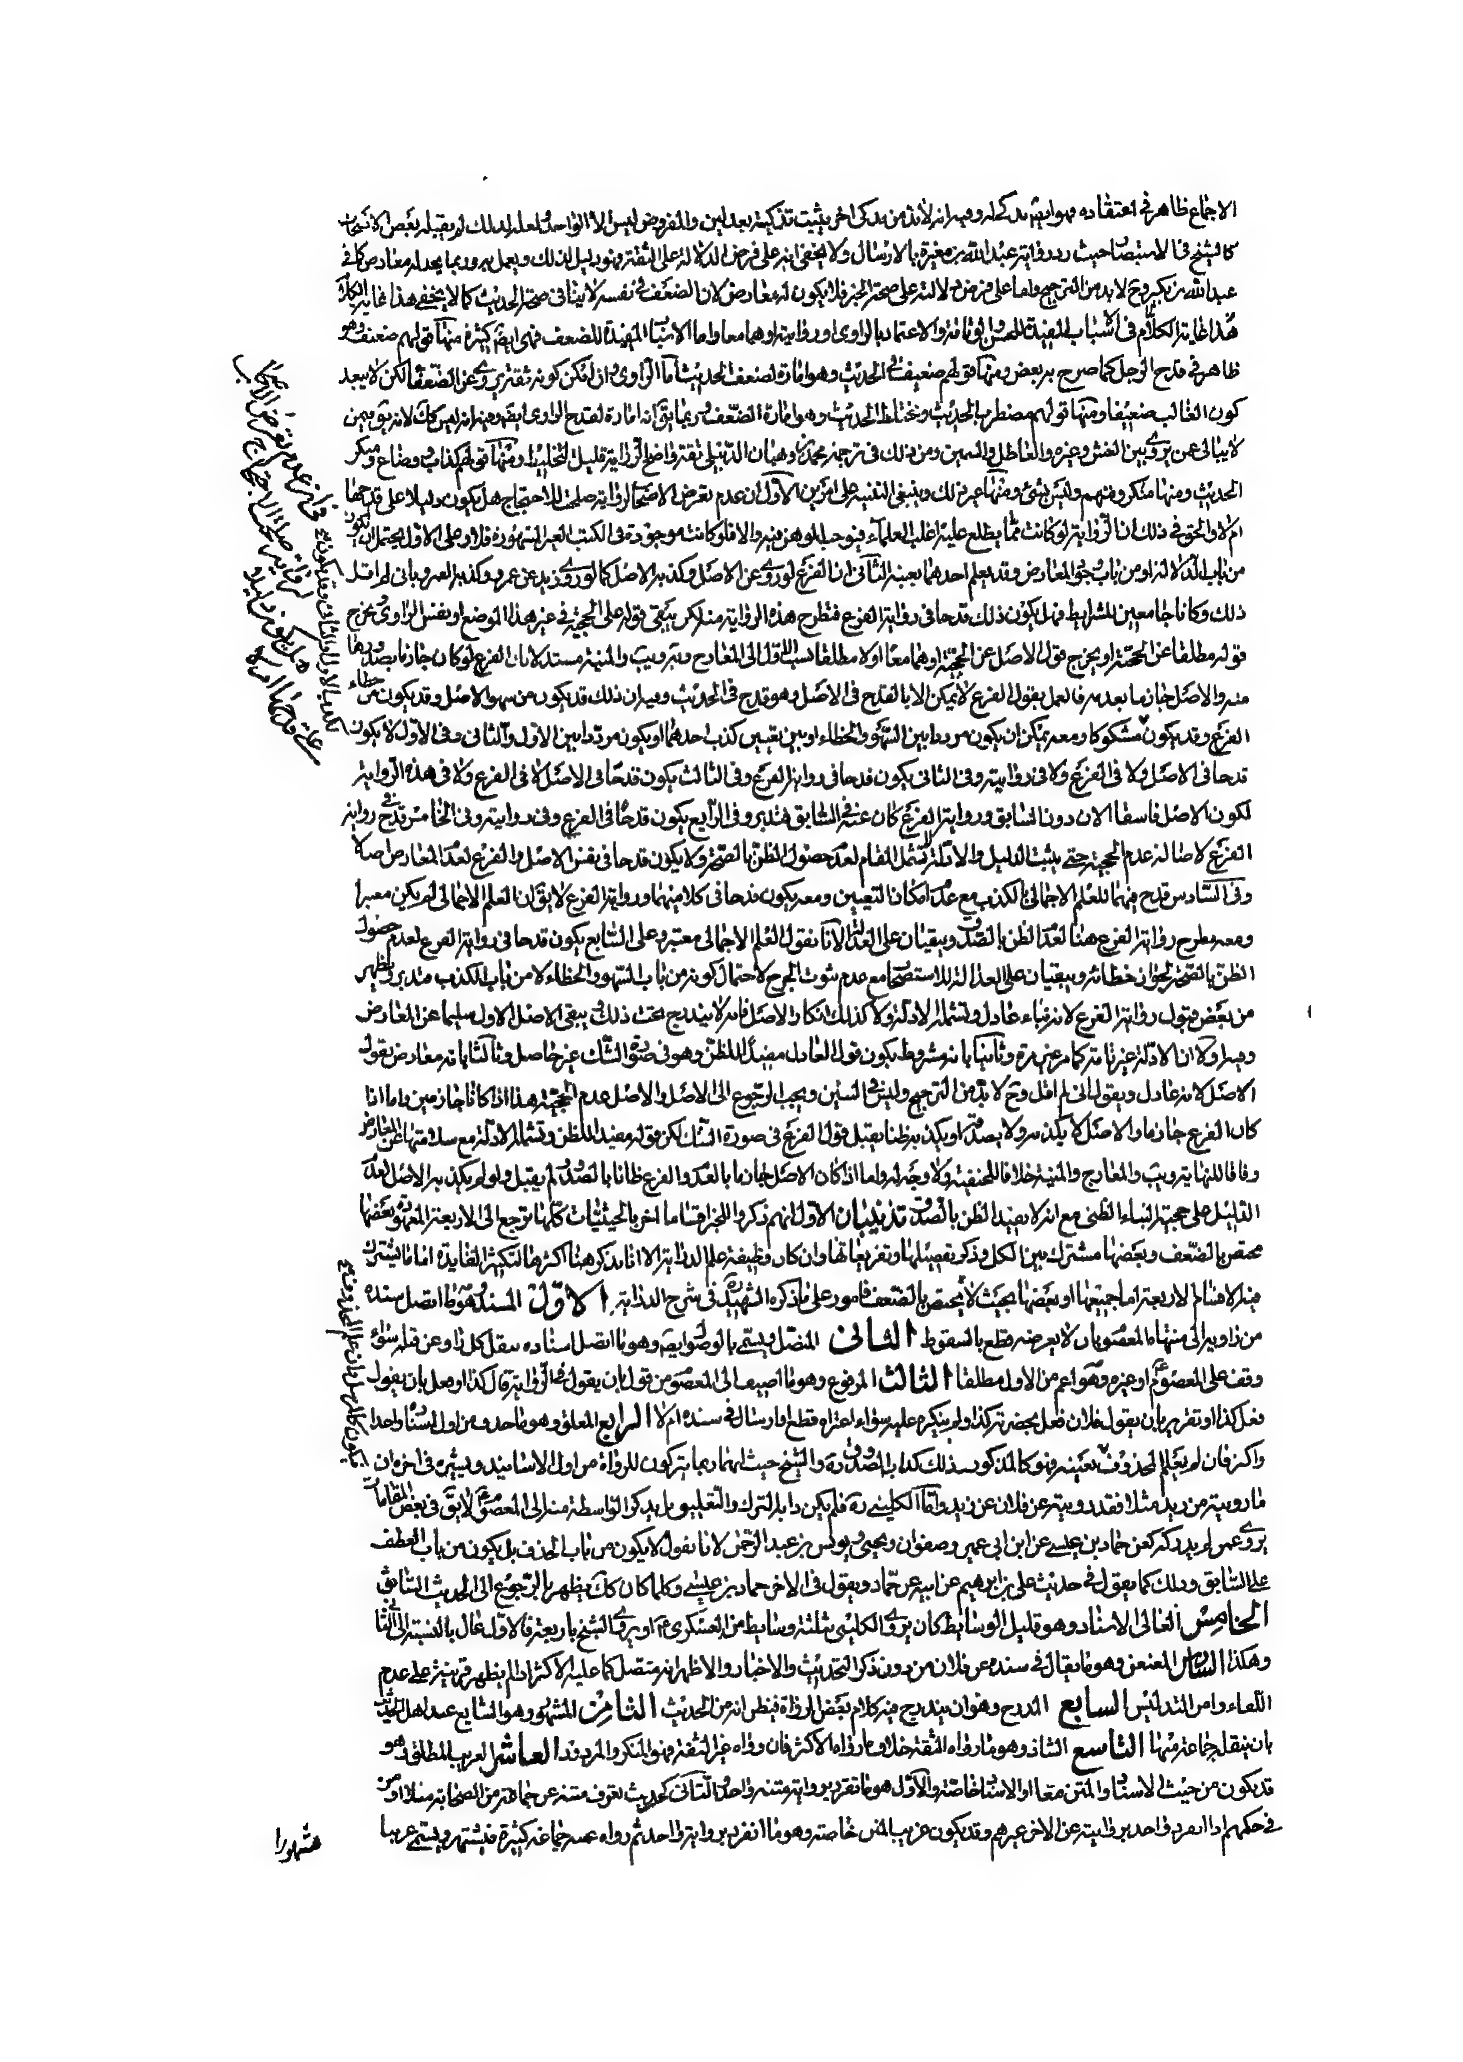 الاجماع ظاهر في اعتقاده فهو ايضا يذكر له وفيه انه لابد من مذكى اخر يثبت تزكيته بعدلين والمفروض ليس الا الواحد ولعله لذلك لم يقبله بعض الاصحاب
كالشيخ في الاستبصار حيث رد رواية عبد الله بن مغيرة بالارسال ولا يخفى انه على فرض الدلالة على الثقة فهو دليل لذلك ويعمل به وربما يجد له معارض كما في
عبد الله بن بكير وح لابد من الترجيح واما على فرض دلالته على صحة الخبر فلا يكون له معارض لان الضعف في نفسه لا ينافي صحة الحديث كما لا يخفى هذا غاية الكلام
هذا غاية الكلام في الاسباب المفيدة للحسن او الوثاقة والاعتماد بالراوى او روايته او هما معا واما الاسباب المفيدة للضعف فهى ايضا كثيرة منها قولهم ضعيف وهو
ظاهر في قدح الرجل كما صرح به بعض ومنها قولهم ضعيف في الحديث وهو امارة لضعف الحديث اما الراوى فلا لمكن كونه ثقة يروى عن الضعفا لكن لا يبعد
كون الغالب ضعيفا ومنها قولهم مضطرب الحديث ومختلط الحديث وهو امارة الضعف وربما يق انه امارة لقدح الراوى ايضا وفيه انه ليس كك لانه يق فيمن
لا يبالى عمن يروى وبين الغش وغيره والعاطل والسمين ومن ذلك في ترجمة محمد بن وهبان الدبيلى ثقة واضح الرواية قليل التخليط ومنها قولهم كذاب وضاع ومنكر
الحديث ومنها منكر ومتهم وليس بشئ ومنها غير ذلك وينبغى التنبيه على امرين الاول ان عدم تعرض الاصحاب لرواية صلحت للاحتجاج هل يكون دليلا على قدحها
ام لا والحق في ذلك ان الرواية لو كانت مما يطلع عليه اغلب العلماء فيوجب الوهن فيه والا فلو كانت موجودة في الكتب الغير المشهورة فلا وعلى الاول يحتمل ان يكون
من باب الدلالة او من باب وجود المعارض وقد يعلم احدهما بعينه الثانى ان الفرع لو روى عن الاصل وكذبه الاصل كما لو روى زيد عن عمرو وكذبه العمرو بانى لم اقل
ذلك وكانا جامعين للشرايط فهل يكون ذلك قدحا في رواية الفرع فتطرح هذه الرواية منه لكن يبقى قوله على الحجية في غير هذا الموضع او بفس الراوى يخرج
قوله مطلقا عن الحجية او يخرج قول الاصل عن الحجية او هما معا او لا مطلقا نسب الاول الى المعارج والتهذيب والمنية مستدلا بان الفرع لو كان جازما بصدورها
منه والاصل جازما بعدمه فالعمل بقول الفرع لا يمكن الا بالقدح في الاصل وهو قدح في الحديث وفيه ان ذلك قد يكون من سهو الاصل وقد يكون من خطاء
الفرع وقد يكون مشكوكا ومعه يمكن ان يكون مرددا بين السهو والخطاء او بين تعيين كذب احدهما او يكون مرددا بين الاول والثانى وفي الاول لا يكون
قدحا في الاصل ولا في الفرع ولا في روايته وفي الثانى يكون قدحا في رواية الفرع وفي الثالث يكون قدحا في الاصل لا في الفرع ولا في هذه الرواية
لكون الاصل فاسقا الان دون السابق ورواية الفرع كان عنه في السابق فتدبر وفي الرابع يكون قدحا في الفرع وفي روايته وفي الخامس قدح في رواية
الفرع لاصالة عدم الحجية حتى يثبت الدليل والادلة لا تشمل المقام لعدم حصول الظن بالصحة ولا يكون قدحا في نفس الاصل والفرع لعدم المعارض اصلا
وفي السادس قدح فيهما للعلم الاجمالى بالكذب مع عدم امكان التعيين ومعه يكون قدحا في كلا منهما ورواية الفرع لا يق ان العلم الاجمالى لم يكن معتبرا
ومعه مطرح رواية الفرع هنا لعدم الظن بالصدق ويبقيان على العدالة لانا نقول العلم الاجمالى معتبر وعلى السابع يكون قدحا في رواية الفرع لعدم حصول
الظن بالصحة لجواز خطائه ويبقيان على العدالة للاستصحاب مع عدم ثبوت الجرح لاحتمال كونه من باب السهو والخطاء لا من باب الكذب فتدبر ويظهر
من بعض قبول رواية الفرع لانه نباء عادل وتشمله الادلة ولا كذلك انكار الاصل فانه لا يندرج تحت ذلك فيبقى الاصل الاول سليما عن المعارض
وفيه اولا ان الادلة غير تامة كما مر غير مرة وثانيا بانه مشروط بكون قول العادل مفيدا للظن وهو في صورة الشك غير حاصل وثالثا بانه معارض بقول
الاصل لانه عادل ويقول انى لم اقل وح لابد من الترجيح وليس في البين ويجب الرجوع الى الاصل والاصل عدم الحجية هذا اذا كانا جازمين واما اذا
كان الفرع جازما والاصل لا يكذبه ولا يصدقه او يكذبه ظنا يقبل قول الفرع في صورة الشك لكن قوله مفيدا للظن وتشمله الادلة مع سلامتها عن المعارض
وفاقا للنهاية وتهذيب والمعارج والمنية خلافا للحنفية ولا وجه له واما اذا كان الاصل جازما بالعدم والفرع ظانا بالصدور لم يقبل ولو لم يكذبه الاصل لعدم
الدليل على حجية انباء الظنى مع انه لا يفيد الظن بالصدق تذنيبان الاول انهم ذكروا للخبر اقساما اخر بالحيثيات كلها ترجع الى الاربعة المعهودة بعضها
مختص بالضعف وبعضها مشترك بين الكل وذكر تفصيلها وتفريعاتها وان كان وظيفة علم الدراية الا انا نذكر هنا اكثرها لتكثير الفايدة اما ما يشترك
فيه الاقسام الاربعة اما جميعها او بعضها بحيث لا يختص بالضعف فامور على ما ذكره الشهيد ره في شرح الدراية الاول المسند وهو ما اتصل سنده
من راويه الى منتهاه المعصوم بان لا يعرضه قطع بالسقوط الثانى المتصل ويسمى بالموصول ايضا وهو ما اتصل اسناده بنقل كل راو عن قبله سواء
وقف على المعصوم ع او غيره وهو اعم من الاول مطلقا الثالث المرفوع وهو ما اضيف الى المعصوم من قول بان يقول في الرواية قال كذا او فعل بان يقول
فعل كذا او تقرير بان يقول فلان فعل بحضرته كذا ولم ينكره عليه سواء اعتراه قطع او ارسال في سنده ام لا الرابع المعلق وهو ما حذف من اول اسناده واحدا
واكثر فان لم يعلم المحذوف بعينه فهو كالمذكور بذلك كداب الصدوق ره والشيخ حيث انهما ربما يتركون للرواة من اول الاسانيد ويشير في اخره ان
ما رويته من زيد مثلا فقد رويته عن فلان عن زيد واما الكلينى ره فلم يكن دابه الترك والتعليق بل يذكر الواسطة منه الى المعصوم لا يق في بعض المقامات
يروى عمن لم يدركه كعن حماد بن عيسى عن ابن ابى عمير وصفوان ويحيى ويونس بن عبد الرحمن لانا نقول لا يكون من باب الحذف بل يكون من باب العطف
على السابق وذلك كما يقول في حديث على بن ابراهيم عن ابيه عن حماد ويقول في الاخر حماد بن عيسى وكلما كان كك يظهر بالرجوع الى الحديث السابق
الخامس العالى الاسناد وهو قليل الوسايط كان يروى الكلينى بثلثة وسايط من العسكرى ع او يروى الشيخ باربعة فالاول عال بالنسبة الى الثانى
وهكذا السادس المعنعن وهو ما يقال في سنده عن فلان من دون ذكر التحديث والاخبار والاظهر انه متصل كما عليه الاكثر اذا لم يظهر قرينة على عدم
اللقاء وامن التدليس السابع المدرج وهو ان يندرج فيه كلام بعض الرواة فيظن انه من الحديث الثامن المشهور وهو الشايع عند اهل الحديث
بان ينقله جماعة منها التاسع الشاذ وهو ما رواه الثقة خلاف ما رواه الاكثر فان رواه غير الثقة فهو المنكر والمردود العاشر الغريب المطلق وهو
قد يكون من حيث الاسناد والمتن معا او الاسناد خاصة والاول هو ما تفرد بروايته متنه واحد والثانى كحديث يعرف متنه عن جماعة من الصحابة مثلا او من
في حكمهم اذا انفرد واحد بروايته عن الاخر غيرهم وقد يكون غريب المتن خاصة وهو ما انفرد بروايته واحد ثم رواه عنه جماعة كثيرة فيشتهر ويسمى غريبا
مشهورا